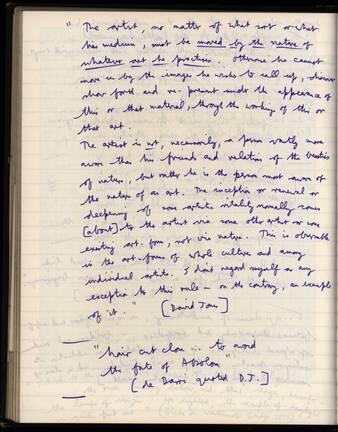 " The artist, no matter of what sort or what
his medium, must be moved by the nature of
whatever art he practises. Otherwise he cannot
move us by the images he wishes to call up, discover
show forth and re-present under the appearance of
this or that material, through the working of this or
that art.
The artist is not, necessarily, a person vastly more
aware than his friends and relations of the beauties
of nature, but rather he is the person most aware of
the nature of an art. The inception or renewal or
deepening of some artistic vitality normally comes
[about] to the artist via some other artist or some
existing art-form, not via nature. This is observable
in the art-forms of whole cultures and among
individual artists. I don't regard myself as any
exception to this rule - on the contrary, an example
of it. " [David Jones]
"hair cut close ... to avoid
the fate of Absolon"
[de Barri quoted D.J.]